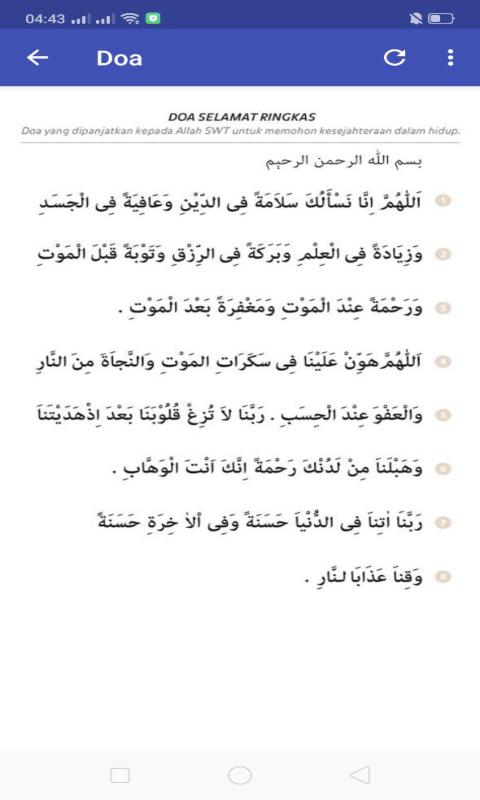 04:43
Doa
DOA SELAMAT RINGKAS
Doa yang dipanjatkan kepada Allah SWT untuk memohon kesejahteraan dalam hidup.
بسم الله الرحمن الرحيم
1 اَللّٰهُمَّ اِنَّا نَسْأَلُكَ سَلَامَةً فِى الدِّيْنِ وَعَافِيَةً فِى الْجَسَدِ
2 وَزِيَادَةً فِى الْعِلْمِ وَبَرَكَةً فِى الرِّزْقِ وَتَوْبَةً قَبْلَ الْمَوْتِ
3 وَرَحْمَةً عِنْدَ الْمَوْتِ وَمَغْفِرَةً بَعْدَ الْمَوْتِ .
4 اَللّٰهُمَّ هَوِّنْ عَلَيْنَا فِى سَكَرَاتِ المَوْتِ وَالنَّجاَةَ مِنَ النَّارِ
5 وَالْعَفْوَ عِنْدَ الْحِسَبِ . رَبَّنَا لاَ تُزِغْ قُلُوْبَنَا بَعْدَ اِذْهَدَيْتَناَ
6 وَهَبْلَنَا مِنْ لَدُنْكَ رَحْمَةً اِنَّكَ اَنْتَ الْوَهَّابِ .
7 رَبَّنَا اٰتِناَ فِى الدُّنْياَ حَسَنَةً وَفِى اْلاٰ خِرَةِ حَسَنَةً
8 وَقِناَ عَذَابَا لنَّارِ .